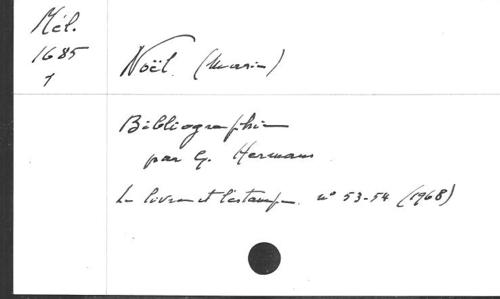 Mél.
1685
1
Noël. (Maurice)
Bibliographie
par G. Hermans
Le livre et l'estampe. n° 53-54 (1968)